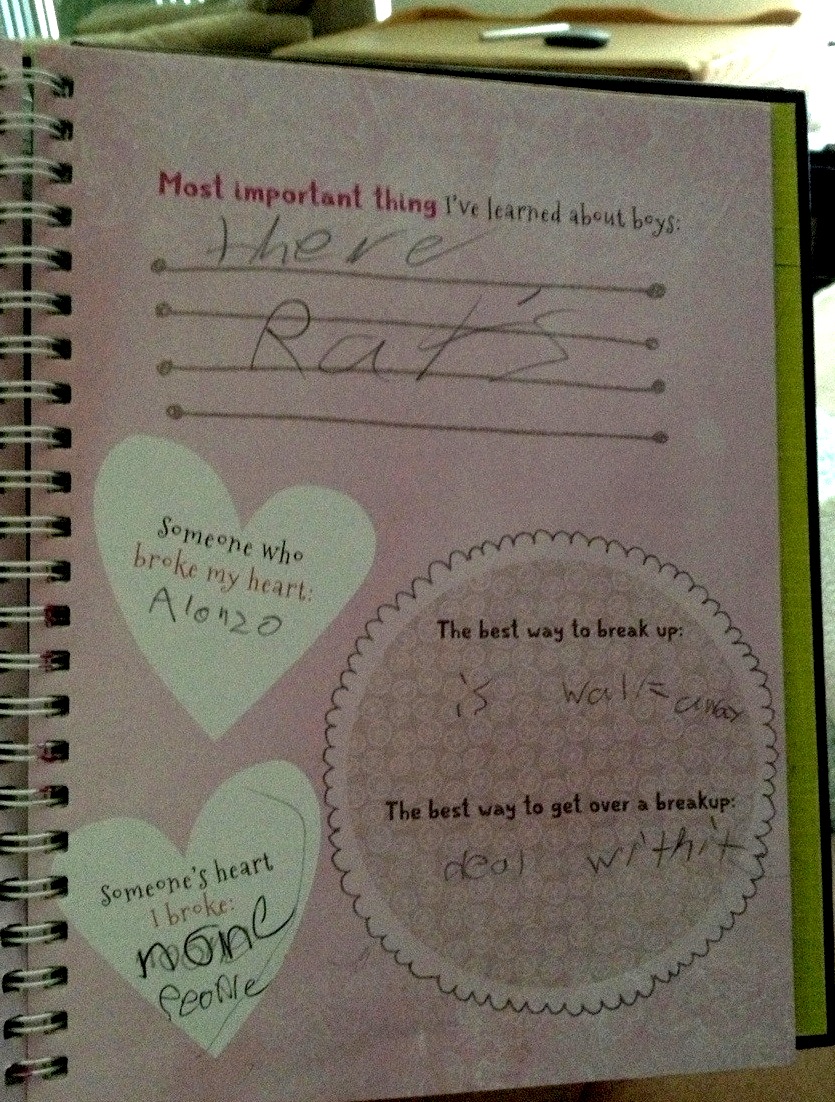 Most important thing I've learned about boys:
there
Rat's
Someone who
broke my heart:
Alonzo
The best way to break up:
is walk away
The best way to get over a breakup:
deal withit
Someone's heart
I broke:
none
People